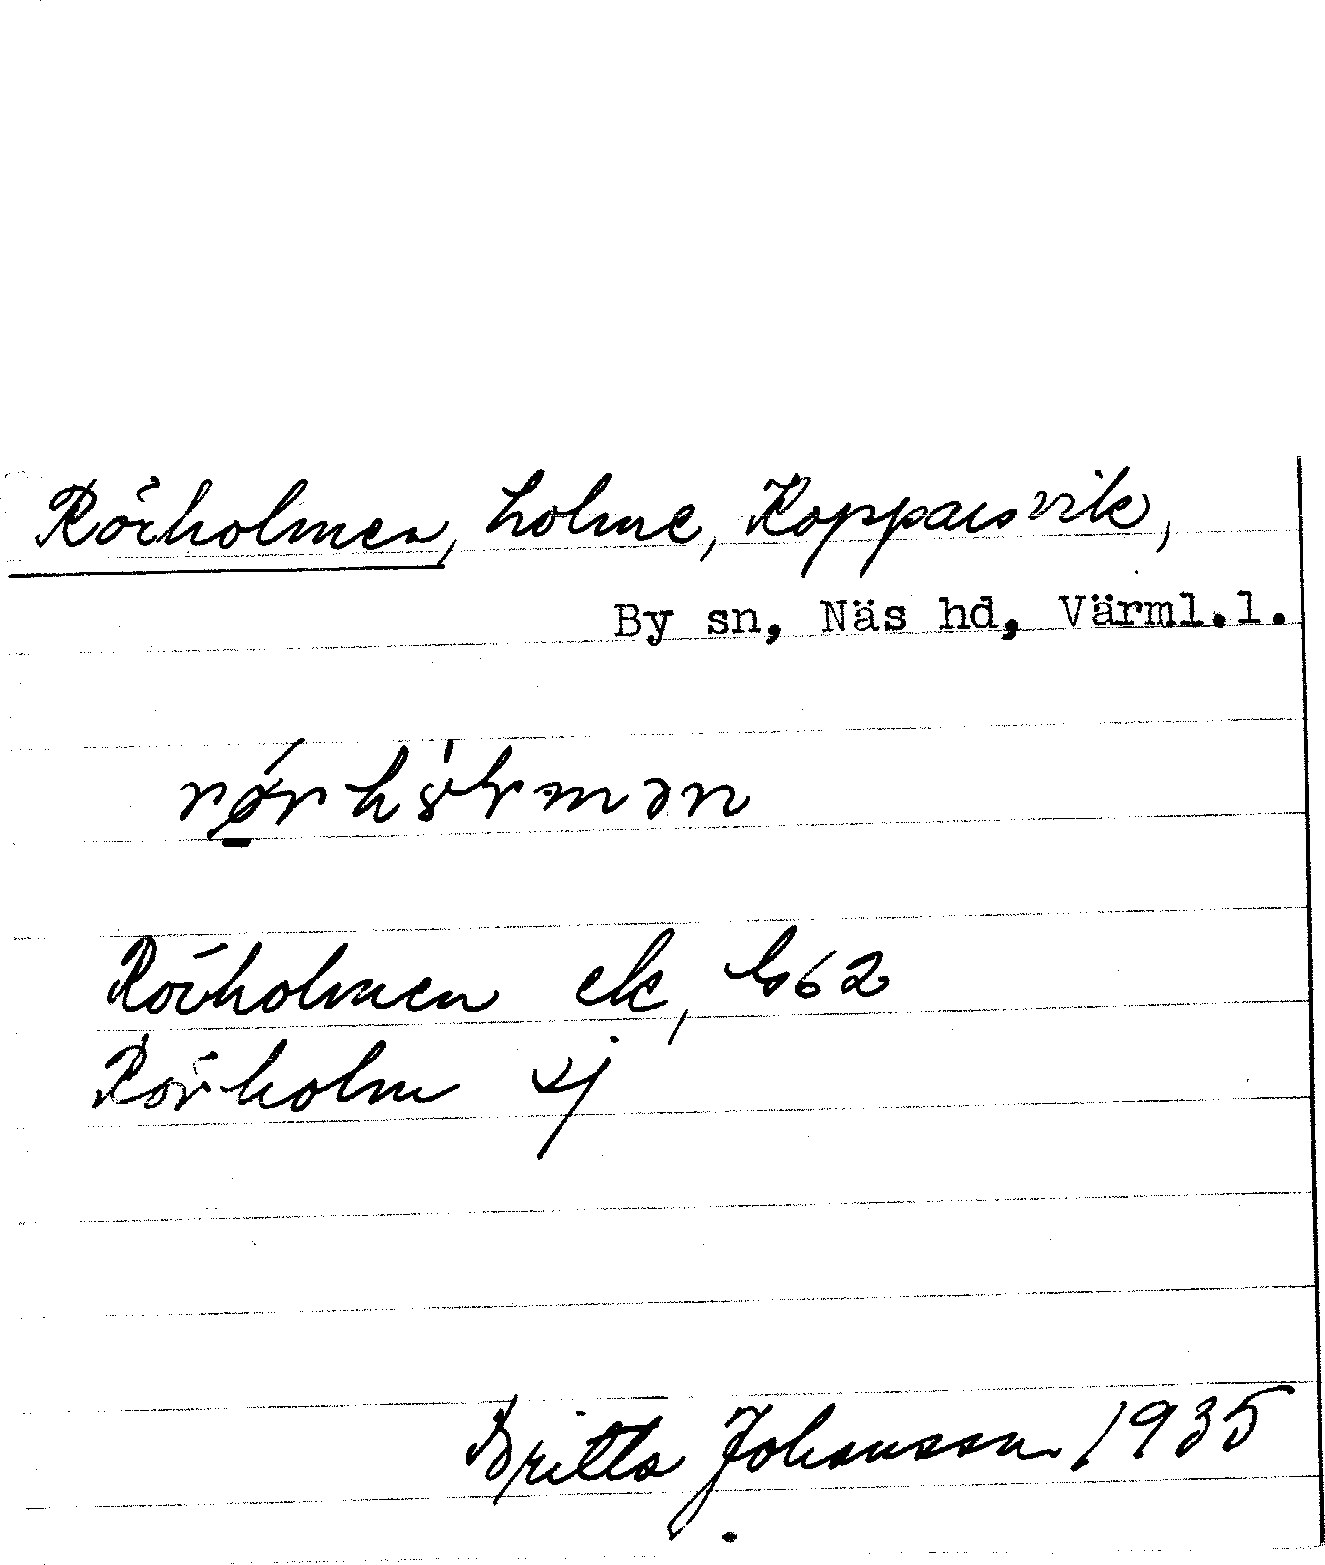 Rörholmen, holme, Kopparsvik,
By sn, Näs hd, Värml.l.
Rörholmen ek, 62
Rörholm sj
Britta Johansson 1935